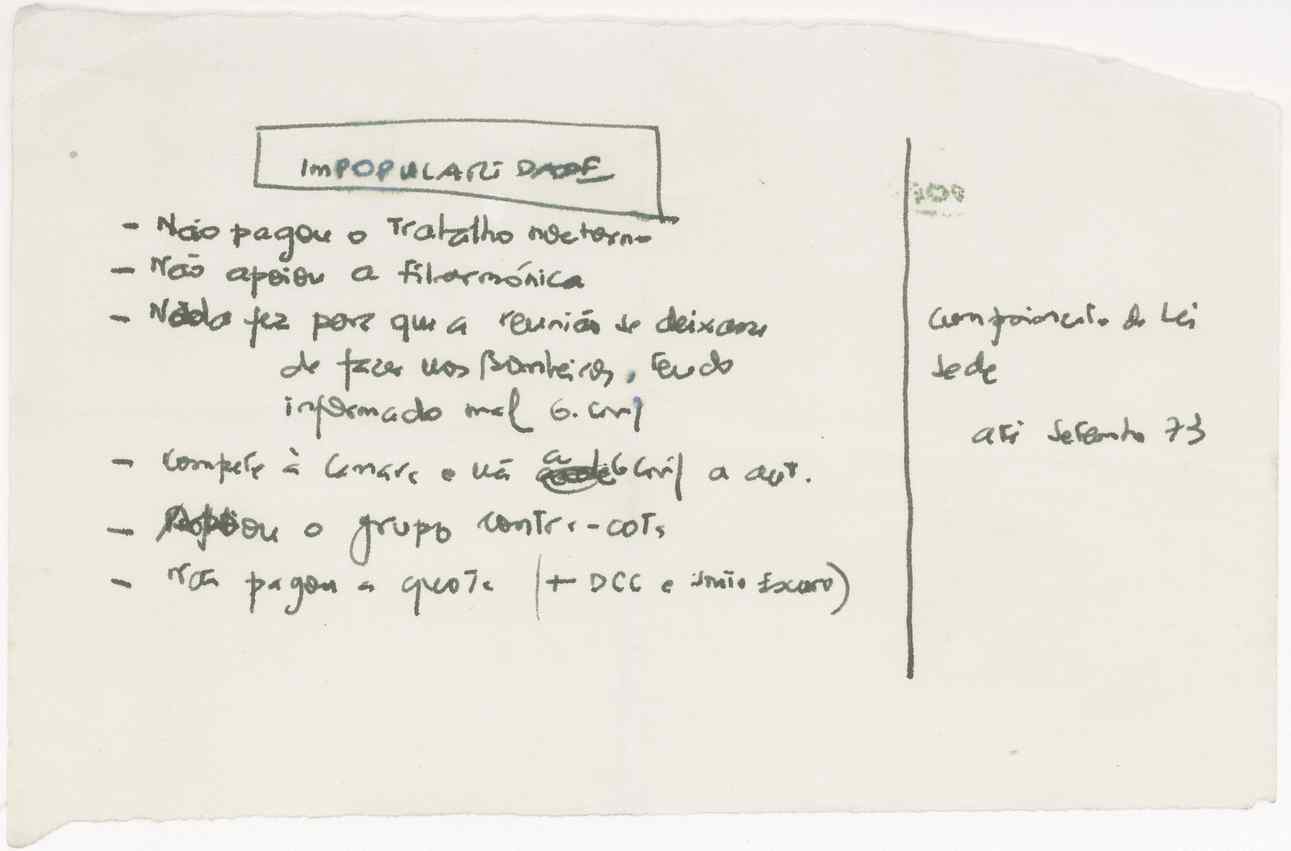 ImPOPULARIDADE
- Não pagou o Trabalho nocturno
- Não apoiou a filarmónica
- Nada fez para que a reunião se deixasse
de fazer nos Bombeiros, tendo
informado mal G. Civil
- Compete à Camara e vá a G Civil a aut.
- Apoiou o grupo contra-cota
- Não pagou a quota (+ DCC e
Cumprimento da Lei
Sede
até Setembro 73